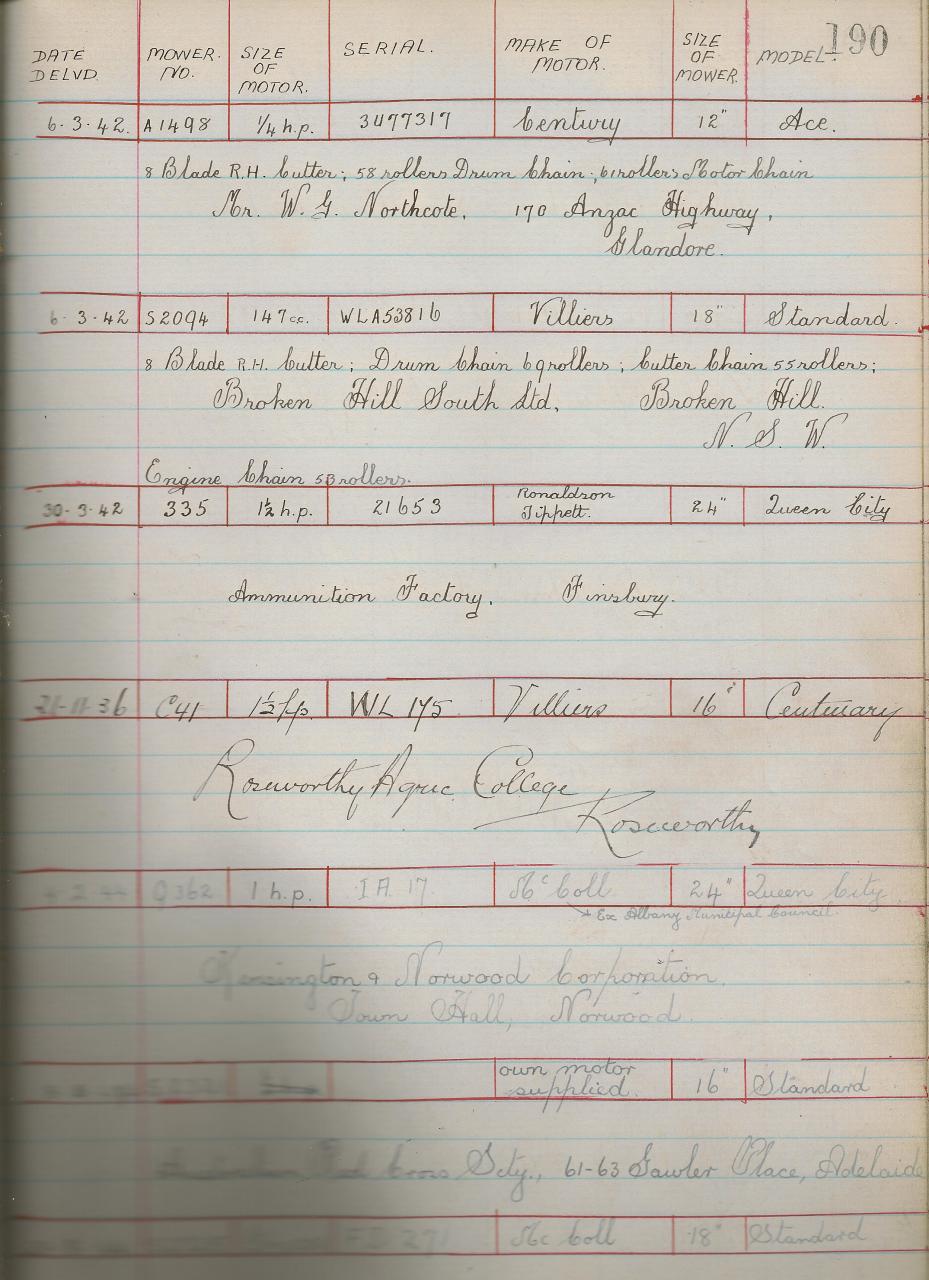 190
DATE DELVD. MOWER. NO. SIZE OF MOTOR. SERIAL. MAKE OF MOTOR. SIZE OF MOWER. MODEL.
6-3-42. A1498 1/4 h.p. 3477317 Century 12" Ace.
8 Blade R.H. Cutter; 58 rollers Drum Chain; 61 rollers Motor Chain
Mr. W. G. Northcote, 170 Anzac Highway,
Glandore.
6-3-42 S2094 147cc. WLA53816 Villiers 18" Standard.
8 Blade R.H. Cutter; Drum Chain 69 rollers; Cutter Chain 55 rollers;
Broken Hill South Ltd, Broken Hill.
N. S. W.
Engine Chain 53 rollers.
30-3-42 335 1½ h.p. 21653 Ronaldson Tippett. 24" Queen City
Ammunition Factory, Finsbury.
21-11-36 C41 1½ h.p. WL 175 Villiers 16" Centuary
Roseworthy Agric. College
Roseworthy
G362 1 h.p. I A 17. McColl 24" Queen City.
Ex Albany Municipal Council.
Kensington & Norwood Corporation,
Town Hall, Norwood.
own motor supplied. 16" Standard
Red Cross Scty., 61-63 Gawler Place, Adelaide
271 Mc Coll 18" Standard